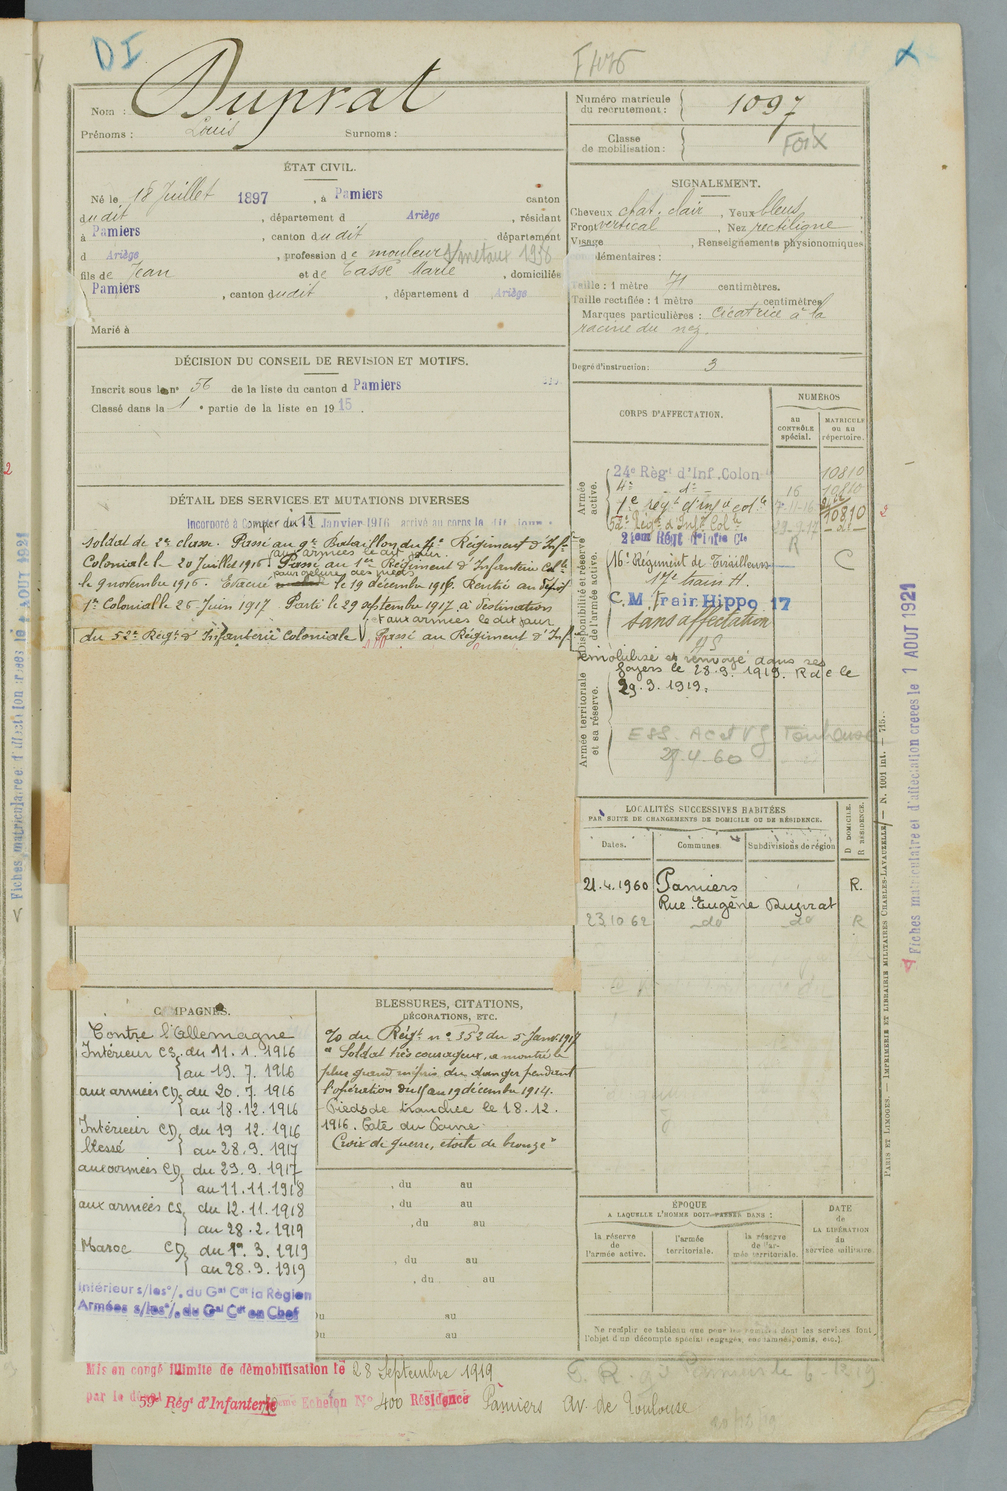 DI
F 1076
Nom : Duprat
Prénoms : Louis Surnoms :
Numéro matricule du recrutement : 1097
Classe de mobilisation :
FOIX
ÉTAT CIVIL.
Né le 18 Juillet 1897, à Pamiers canton
dudit, département d Ariège, résidant
à Pamiers, canton dudit département
d Ariège, profession de mouleur s/métaux 1938
fils de Jean et de Tassé Marie, domiciliés
Pamiers, canton dudit, département d Ariège
Marié à
SIGNALEMENT.
Cheveux chat. clair, Yeux bleus
Front vertical, Nez rectiligne
Visage, Renseignements physionomiques
complémentaires :
Taille : 1 mètre 71 centimètres.
Taille rectifiée : 1 mètre centimètres
Marques particulières : Cicatrice à la
racine du nez.
Degré d'instruction : 3
DÉCISION DU CONSEIL DE REVISION ET MOTIFS.
Inscrit sous le nº 56 de la liste du canton d Pamiers
Classé dans la 1e partie de la liste en 1915.
DÉTAIL DES SERVICES ET MUTATIONS DIVERSES
Incorporé à Compter du 11 Janvier 1916 arrivé au corps le dit jour
Soldat de 2e classe. Passé au 9e Bataillon du 4e Régiment d'Infie
aux armées le dit jour.
Coloniale le 20 Juillet 1916. Passé au 1er Régiment d'Infanterie Colle
pour gelure des pieds
le 9 novembre 1916. Evacué le 19 décembre 1916. Rentré au dépôt
1er Colonial le 26 Juin 1917. Parti le 29 septembre 1917 à destination
et aux armées le dit jour
du 52e Régt d'Infanterie Coloniale. Passé au Régiment d'Inf.
CORPS D'AFFECTATION.
NUMÉROS
au contrôle spécial.
matricule ou au répertoire.
Armée active.
24e Régt d'Inf. Colon 10810
4e do 16 10810
1e régt d'inf ie colle 7-11-16
52e Régt d'Inf. Colle 10810
21ème Régt d'Infie Cle
R
Disponibilité et réserve de l'armée active.
16e Régiment de Tirailleurs C
17e train H.
C.M Train Hippo 17
Sans affectation
Armée territoriale et sa réserve.
Démobilisé et renvoyé dans ses
foyers le 28.9.1919. R du c le
29.9.1919.
ESS. AC et VG Toulouse
29.4.60
LOCALITÉS SUCCESSIVES HABITÉES
PAR SUITE DE CHANGEMENTS DE DOMICILE OU DE RÉSIDENCE.
Dates. Communes. Subdivisions de région
D DOMICILE. R RÉSIDENCE.
21.4.1960 Pamiers R.
Rue Eugène Duprat
23.10 62 _do _do R
CAMPAGNES.
Contre l'Allemagne
Intérieur CS. du 11.1.1916
au 19.7.1916
aux armées CD. du 20.7.1916
au 18.12.1916
Intérieur CD. du 19 12.1916
blessé au 28.9.1917
aux armées CD. du 29.9.1917
au 11.11.1918
aux armées CS. du 12.11.1918
au 28.2.1919
Maroc CD. du 1er.3.1919
au 28.9.1919
Intérieur s/les º/. du Gal Cdt la Région
Armées s/les º/. du Gal Cdt en Chef
BLESSURES, CITATIONS,
DÉCORATIONS, ETC.
% du Régt nº 352 du 5 Janv. 1917
"Soldat très courageux, a montré le
plus grand mépris du danger pendant
l'opération du 15 au 19 décembre 1914.
Pieds de tranchée le 18.12.
1916. Côte du Poivre.
Croix de guerre, étoile de bronze"
, du au
, du au
, du au
, du au
, du au
Du au
Du au
ÉPOQUE
A LAQUELLE L'HOMME DOIT PASSER DANS :
la réserve de l'armée active.
l'armée territoriale.
la réserve de l'armée territoriale.
DATE de LA LIBÉRATION du service militaire.
Ne remplir ce tableau que pour les hommes dont les services font
l'objet d'un décompte spécial (engagés, ex-insoumis, omis, etc.).
Mis en congé illimité de démobilisation le 28 Septembre 1919
par le dépôt 59e Régt d'Infanterie Echelon Nº 400 Résidence Pamiers Av. de Toulouse
Fiches matriculaire et d'affectation créées le 1 AOUT 1921
Fiches matriculaire et d'affectation créées le 1 AOUT 1921
PARIS ET LIMOGES. — IMPRIMERIE ET LIBRAIRIE MILITAIRES CHARLES-LAVAUZELLE. — N. 1001 int. — 715.